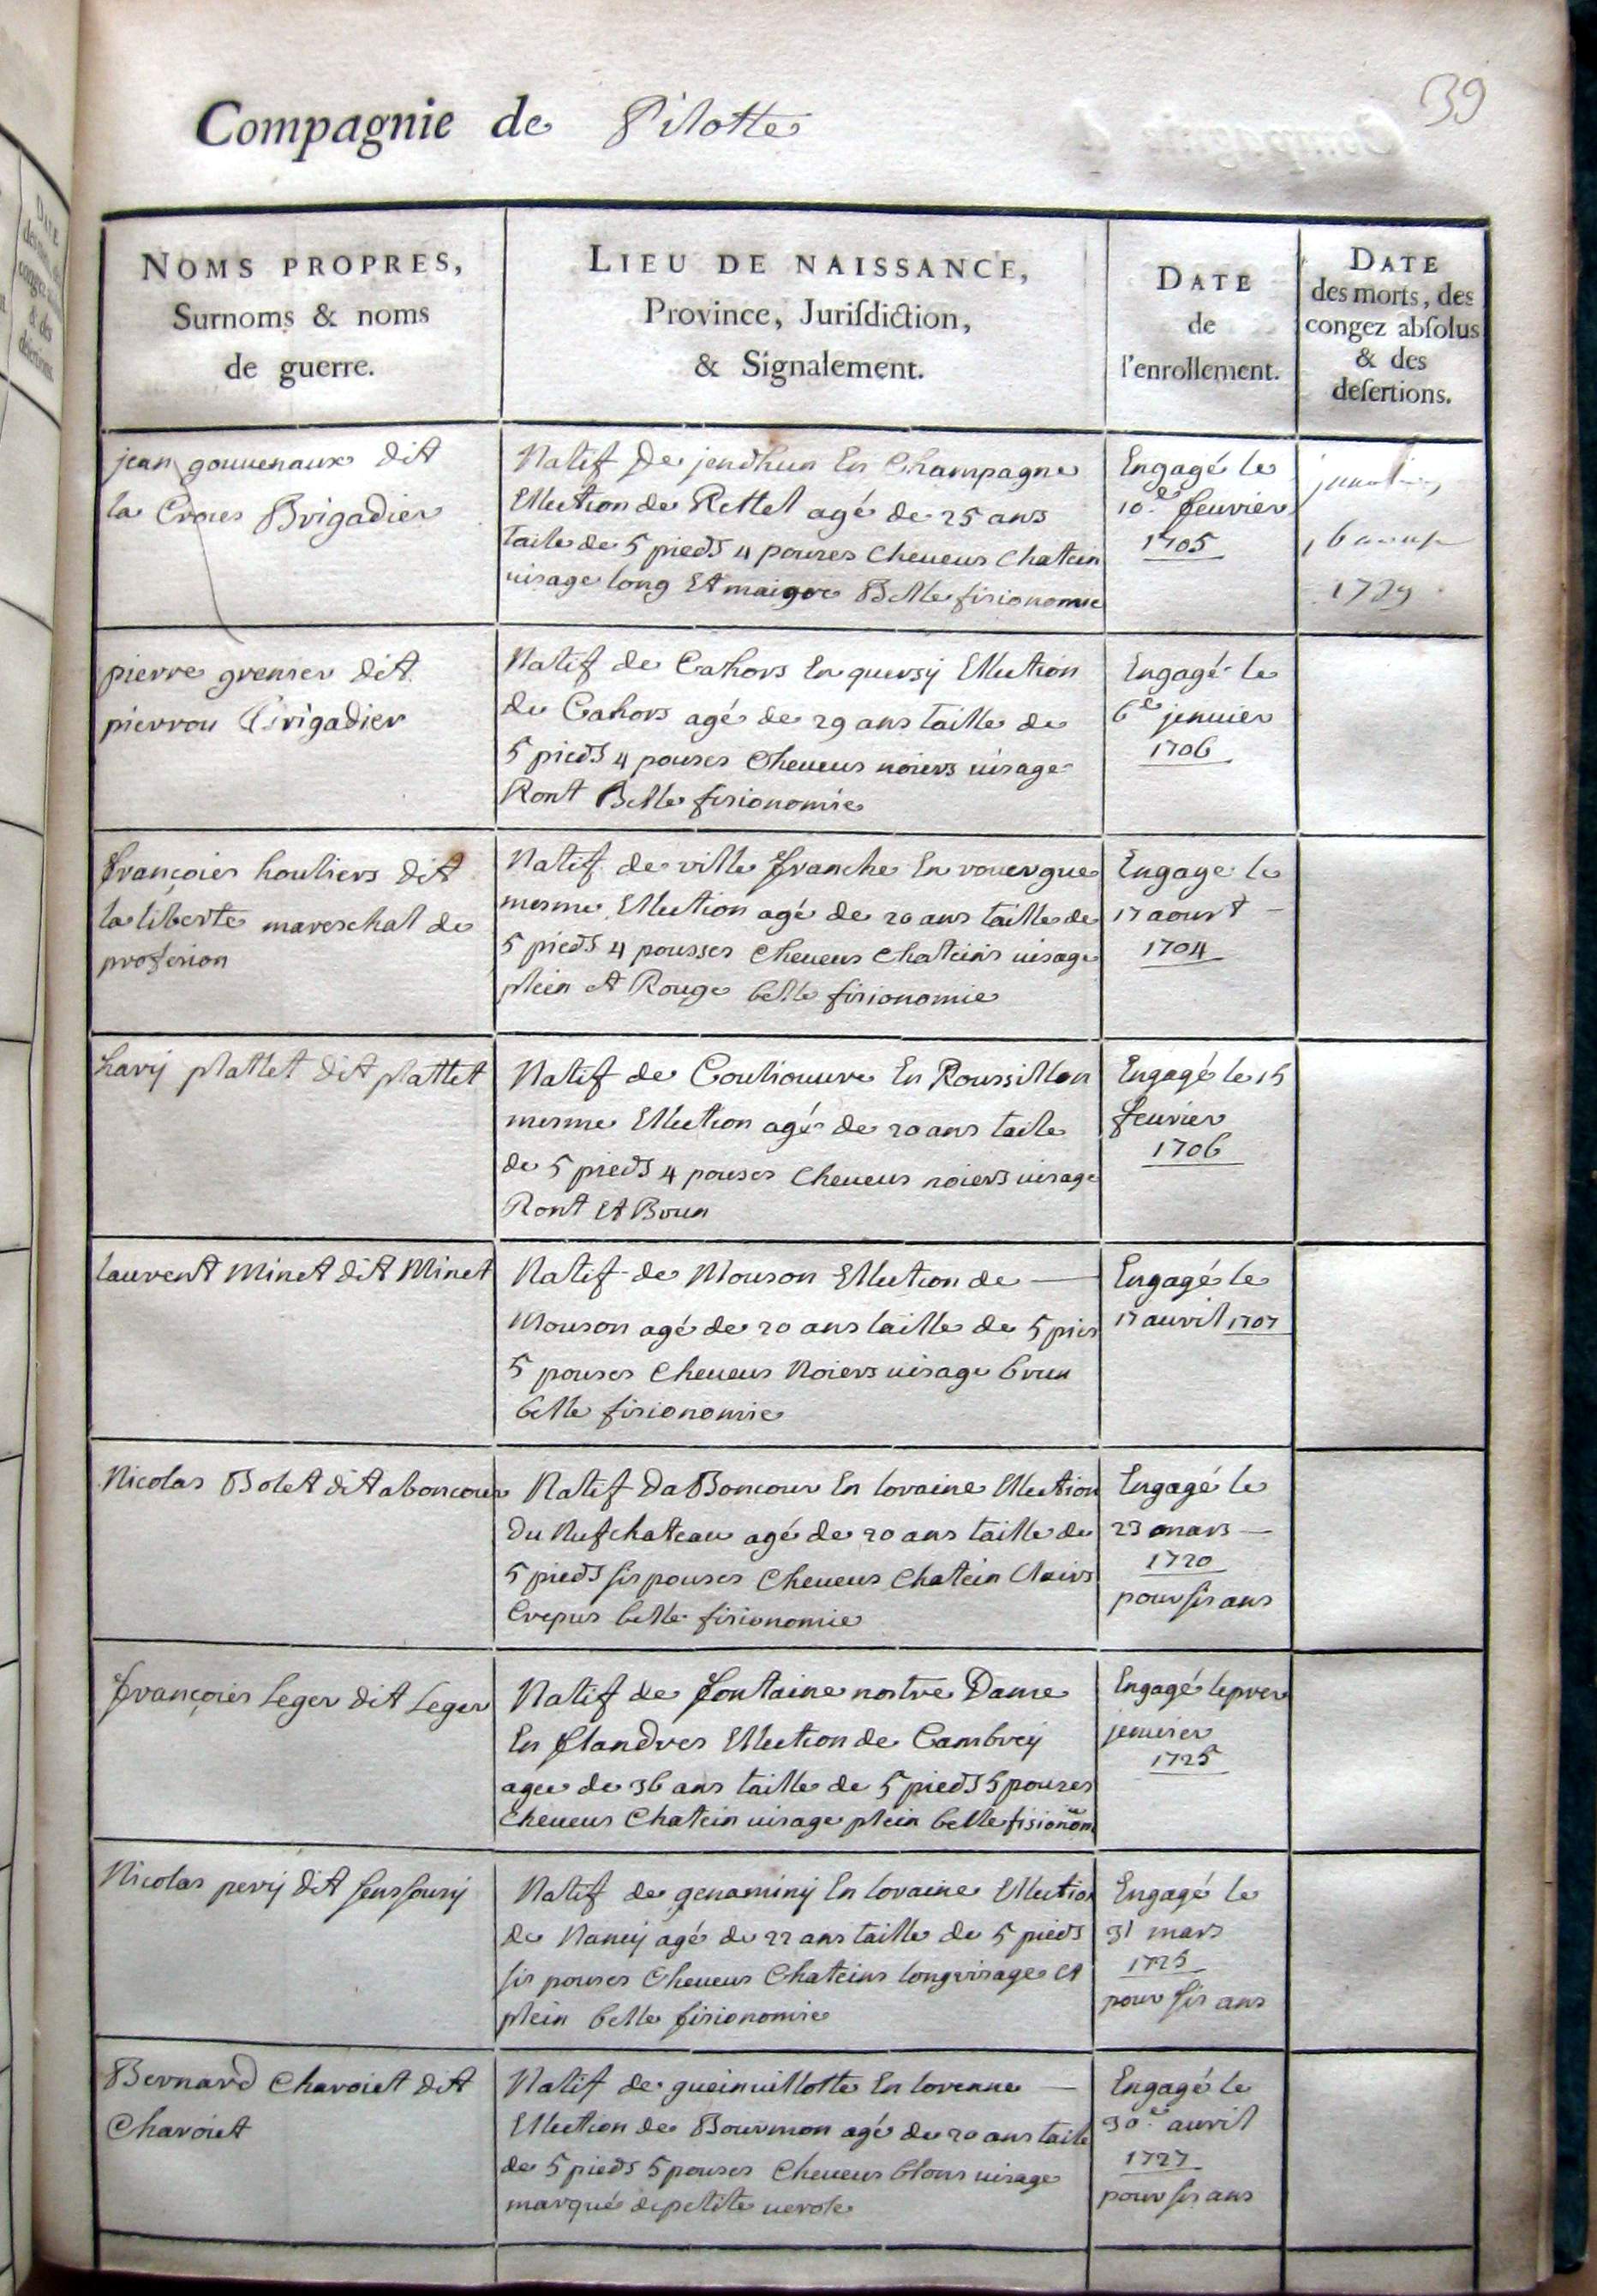 39
Compagnie de Pilotte
NOMS PROPRES,
Surnoms & noms
de guerre.
LIEU DE NAISSANCE,
Province, Jurisdiction,
& Signalement.
DATE
de
l'enrollement.
DATE
des morts, des
congez absolus
& des
desertions.
jean gouuenaux dit
la Croies Brigadier
Natif De jendhun En Champagne
Ellection de Rettel agé de 25 ans
taile de 5 pieds 4 pouses Cheueus Chatein
uisage long Et maigre Belle fisionomie
Engagé le
10.e feurier
1705
1729
pierre grenier dit
pierrou Brigadier
Natif de Cahors En quersy Ellection
de Cahors agé de 29 ans taille de
5 pieds 4 pouses Cheueus noiers uisage
Ront Belle fisionomie
Engagé le
6e jenuier
1706
françois houliers dit
la liberte mareschal de
profesion
Natif de ville franche En rouergue
mesme Ellection agé de 20 ans taille de
5 pieds 4 pousses Cheueus Chateins uisage
plein et Rouge belle fisionomie
Engage le
17 aoust
1704
hary plattet dit plattet
Natif de Couliouure En Roussillon
mesme Ellection agé de 20 ans taile
de 5 pieds 4 pouses Cheueus noiers uisage
Ront Et Brun
Engagé le 15
feurier
1706
laurent Minet dit Minet
Natif de Mouson Ellection de
Mouson agé de 20 ans taille de 5 pies
5 pouses Cheueus Noiers uisage brun
belle fisionomie
Engagé le
17 auvril 1707
Nicolas Bolet dit aboncour
Natif Da Boncour En loraine Ellection
Du Nufchateau agé de 20 ans taille de
5 pieds sis pouses Cheueus Chatein Clairs
Crepus belle fisionomie
Engagé le
23 mars
1720
pour sis ans
françois Leger dit Leger
Natif de fontaine nostre Dame
En flandres Ellection de Cambrey
agee de 36 ans taille de 5 pieds 5 pouses
Cheueus Chatein uisage plein belle fisionom
Engagé le pr
jenuier
1725
Nicolas pery dit sanssousy
Natif de genaminy En loraine Ellection
de Nancy agé de 22 ans taille de 5 pieds
sis pouses Cheueus Chateins long uisage et
plein belle fisionomie
Engagé le
31 mars
1725
pour sis ans
Bernard Charoiet dit
Charoiet
Natif de gueinuillotte En lorenne
Ellection de Bourmon agé de 20 ans taile
de 5 pieds 5 pouses Cheueus blons uisage
marqué de petite uerole
Engagé le
30.e auvril
1727
pour sis ans